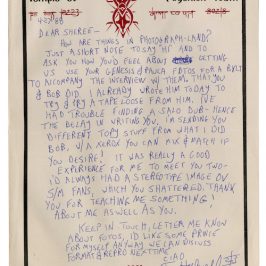 4/27/88
DEAR SHREE—
HOW ARE THINGS IN PHOTOGRAPH-LAND?
JUST A SHORT NOTE TO SAY "HI" AND TO
ASK YOU HOW YOU'D FEEL ABOUT LETTING
US USE YOUR GENESIS & PAULA FOTOS FOR A
TO ACCOMPANY THE INTERVIEW W/ THEM THAT YOU
& BOB DID. I ALREADY WROTE HIM TODAY TO
TRY & PRY A TAPE LOOSE FROM HIM. I'VE
HAD TROUBLE FINDING A DUB- HENCE
THE DELAY IN WRITING YOU. I'M SENDING YOU
DIFFERENT TOPY STUFF FROM WHAT I DID
BOB, W/A XEROX YOU CAN MIX & MATCH IF
YOU DESIRE! IT WAS REALLY A GOOD
EXPERIENCE FOR ME TO MEET YOU TWO-
I'D ALWAYS HAD A STEREOTYPE IMAGE OV
S/M FANS, WHICH YOU SHATTERED. THANK
YOU FOR TEACHING ME SOMETHING!
ABOUT ME AS WELL AS YOU.
KEEP IN TOUCH, LETTER ME KNOW
ABOUT FOTOS, I'D LIKE SOME
FOR MYSELF ANYWAY WE CAN DISCUSS
FORMAT & REPRO NEXT TIME
CIAO